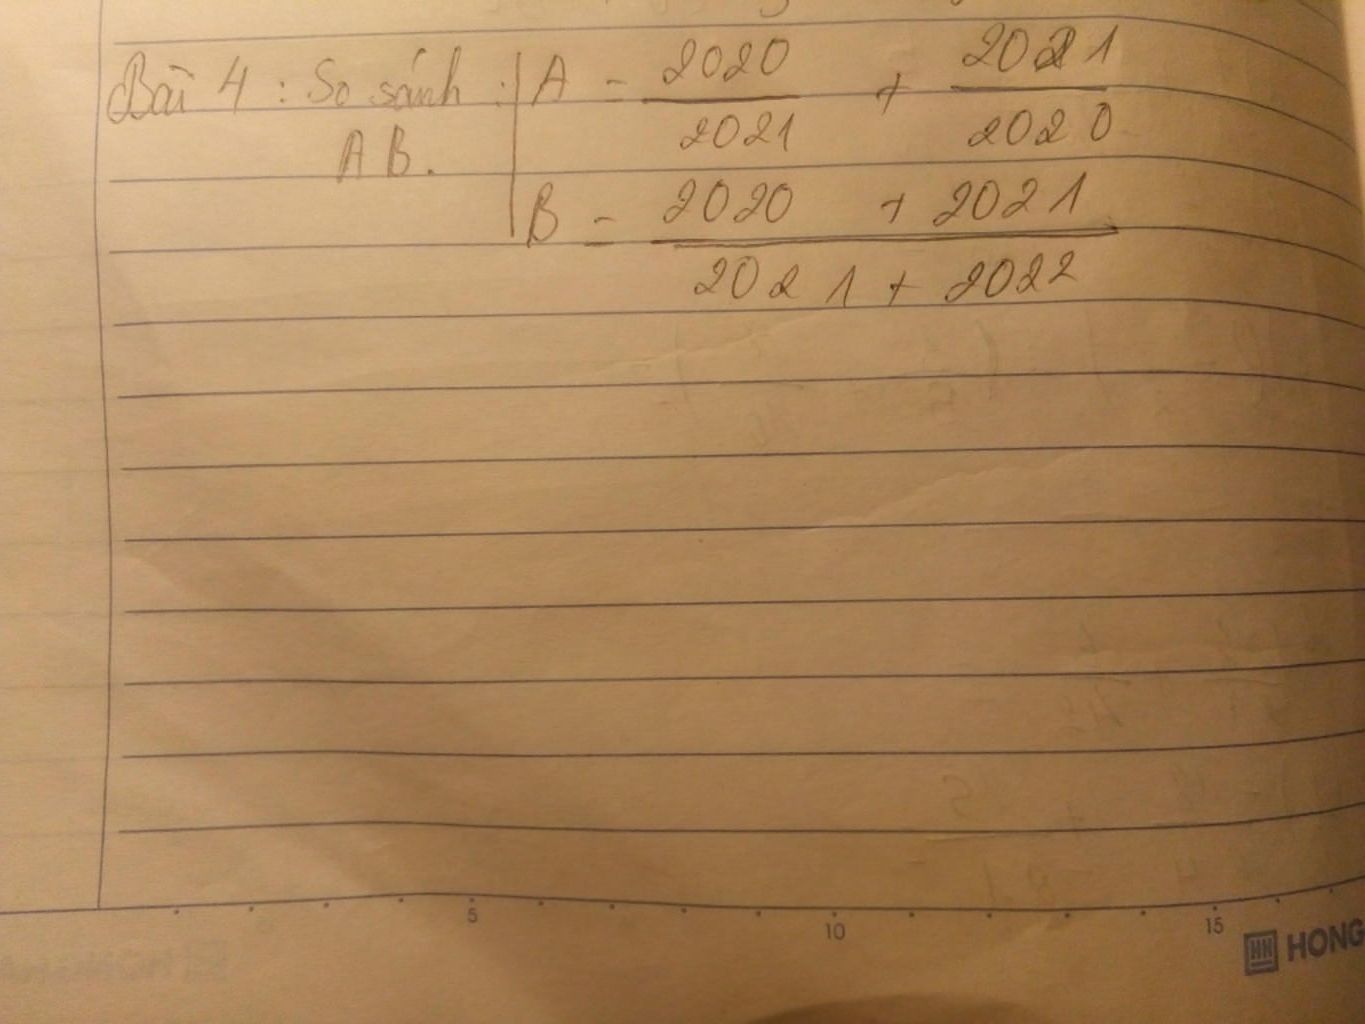 Bài 4 : So sánh : A = 2020/2021 + 2021/2020
A B.
B = 2020 + 2021 / 2021 + 2022
5 10 15
HONG